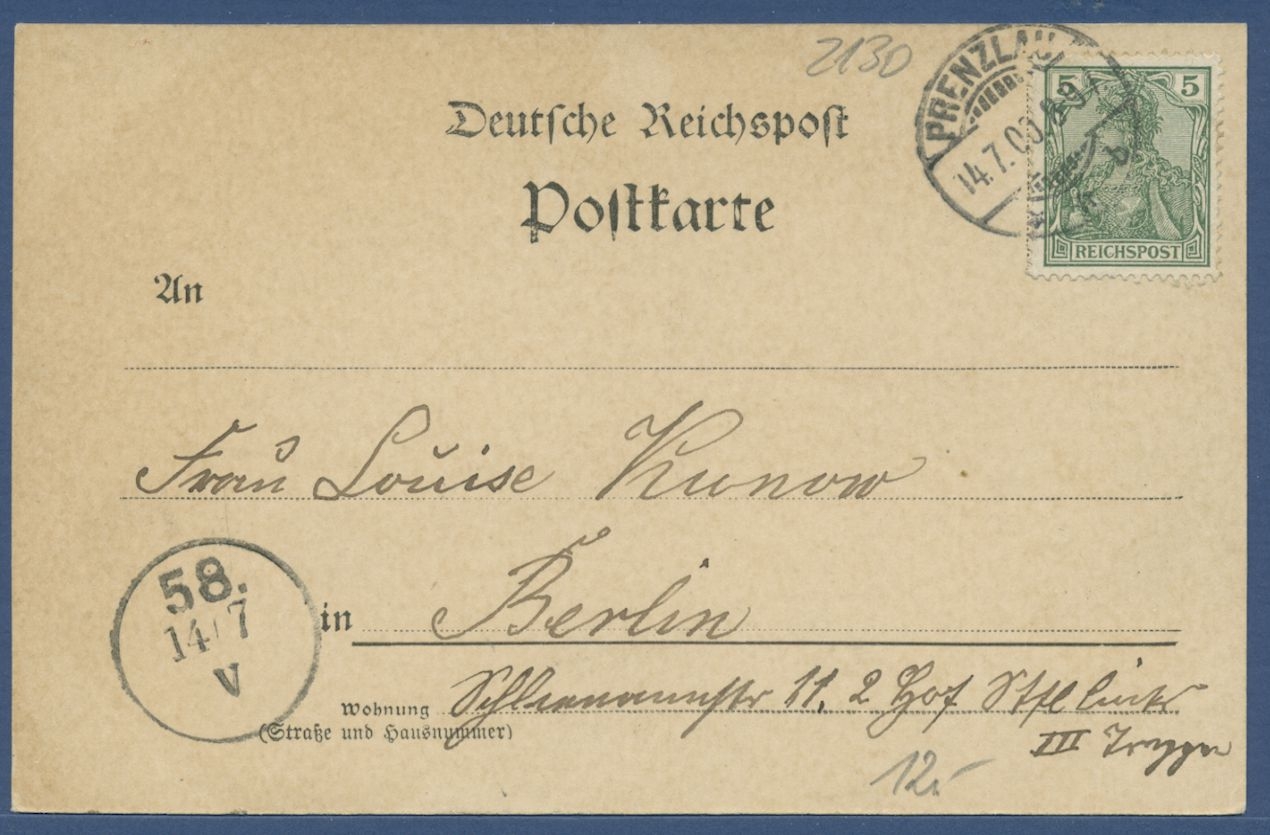 2130
Deutsche Reichspost
Postkarte
PRENZLAU
14.7.00. 8-9
b
5 5
REICHSPOST
An
Frau Louise Kunow
58.
14/7
V
in Berlin
Wohnung
(Straße und Hausnummer)
Schliemannstr 11. 2 Hof Stfl links
III Treppen
12,-